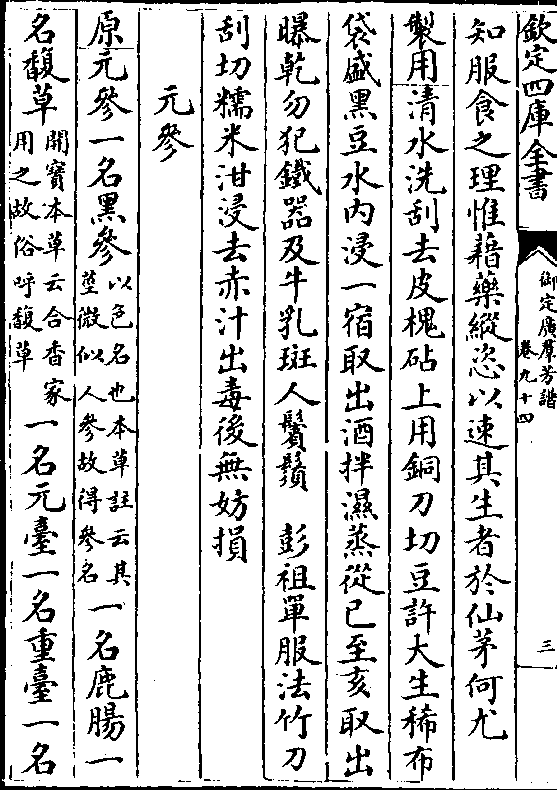 欽定四庫全書
御定廣羣芳譜
卷九十四
三
知服食之理惟藉藥縱恣以速其生者於仙茅何尤
製用清水洗刮去皮槐砧上用銅刀切豆許大生稀布
袋盛黑豆水内浸一宿取出酒拌濕蒸從巳至亥取出
曝乾勿犯鐵器及牛乳斑人鬢鬚 彭祖單服法竹刀
刮切糯米泔浸去赤汁出毒後無妨損
元參
原元參一名黑參以色名也本草註云其莖微似人參故得參名一名鹿腸一
名馥草開寶本草云合香家用之故俗呼馥草一名元臺一名重臺一名